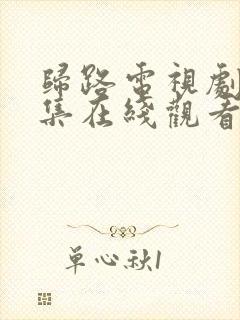 歸路電視劇
集在綫觀看
單心秋1